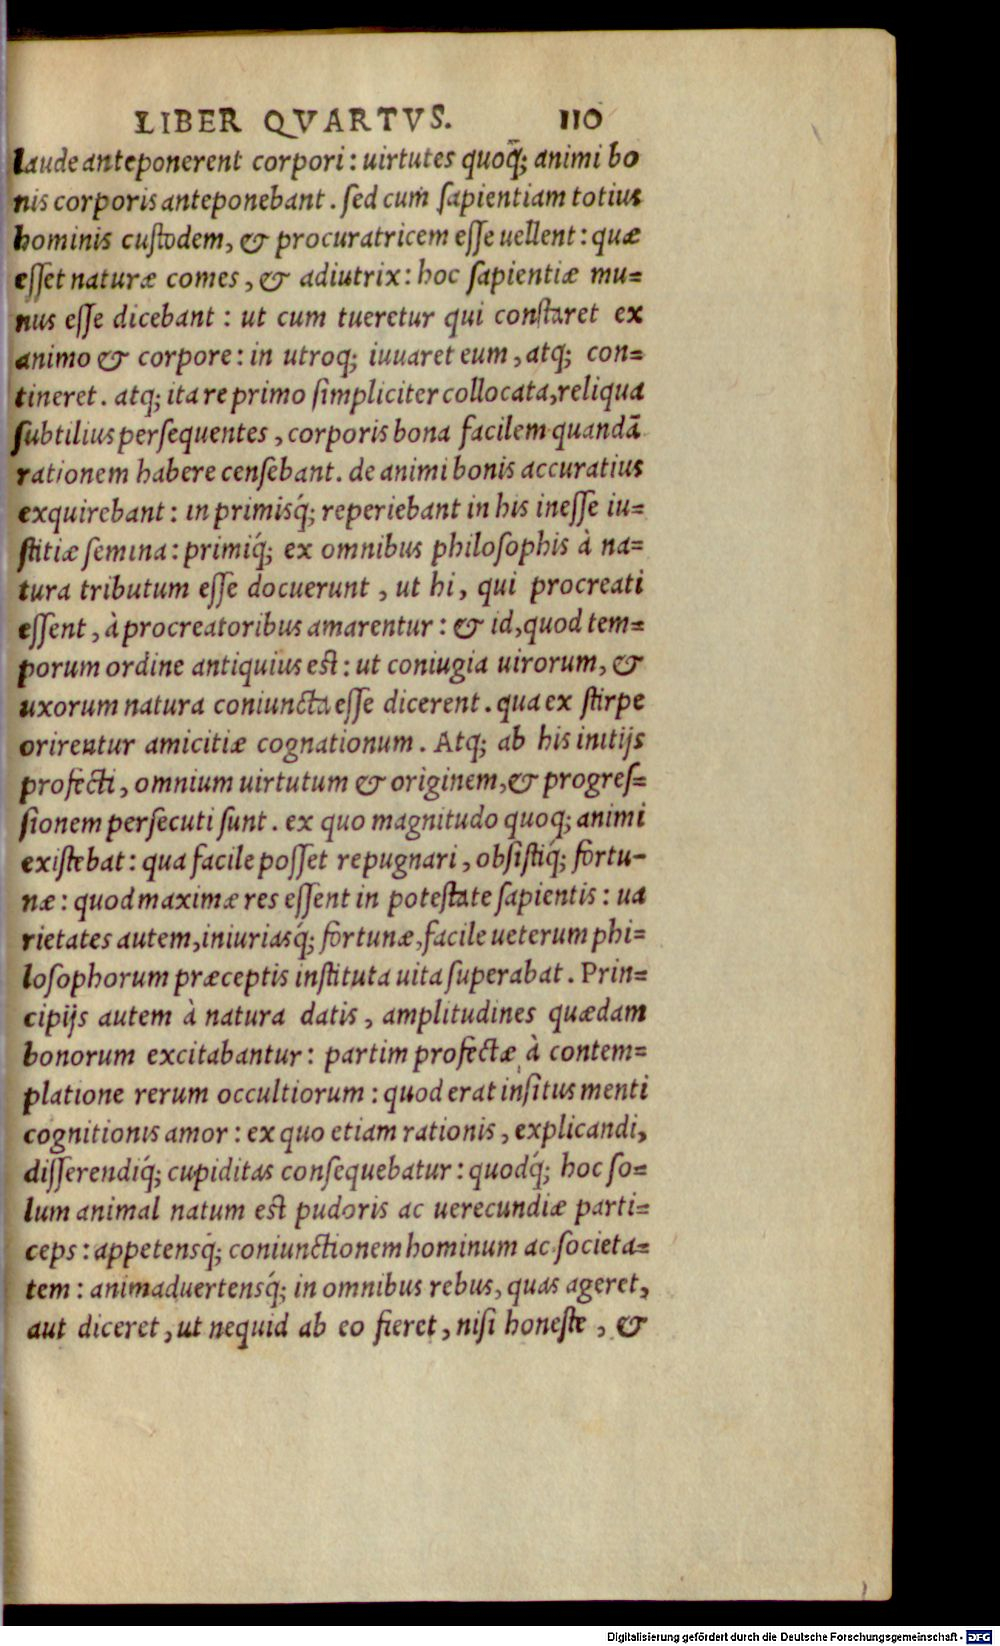 LIBER QVARTVS. 110
laude anteponerent corpori: uirtutes quoq̃; animi bo
nis corporis anteponebant. sed cum sapientiam totius
hominis custodem, & procuratricem esse uellent: quæ
esset naturæ comes, & adiutrix: hoc sapientiæ mu=
nus esse dicebant: ut cum tueretur qui constaret ex
animo & corpore: in utroq; iuuaret eum, atq; con=
tineret. atq; ita re primo simpliciter collocata, reliqua
subtilius persequentes, corporis bona facilem quandã
rationem habere censebant. de animi bonis accuratius
exquirebant: in primisq́; reperiebant in his inesse iu=
stitiæ semina: primiq́; ex omnibus philosophis à na=
tura tributum esse docuerunt, ut hi, qui procreati
essent, à procreatoribus amarentur: & id, quod tem=
porum ordine antiquius est: ut coniugia uirorum, &
uxorum natura coniuncta esse dicerent. qua ex stirpe
orirentur amicitiæ cognationum. Atq; ab his initijs
profecti, omnium uirtutum & originem, & progres=
sionem persecuti sunt. ex quo magnitudo quoq; animi
existebat: qua facile posset repugnari, obsistiq́; fortu-
næ: quod maximæ res essent in potestate sapientis: ua
rietates autem, iniuriasq́; fortunæ, facile ueterum phi=
losophorum præceptis instituta uita superabat. Prin=
cipijs autem à natura datis, amplitudines quædam
bonorum excitabantur: partim profectæ à contem=
platione rerum occultiorum: quod erat insitus menti
cognitionis amor: ex quo etiam rationis, explicandi,
disserendiq́; cupiditas consequebatur: quodq́; hoc so=
lum animal natum est pudoris ac uerecundiæ parti=
ceps: appetensq́; coniunctionem hominum ac societa=
tem: animaduertensq́; in omnibus rebus, quas ageret,
aut diceret, ut nequid ab eo fieret, nisi honeste, &
Digitalisierung gefördert durch die Deutsche Forschungsgemeinschaft - DFG